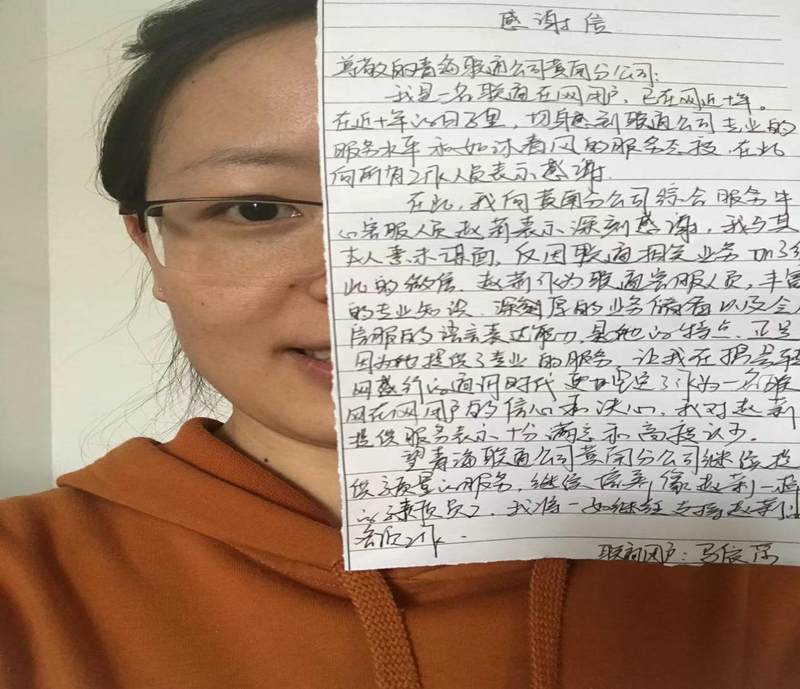 感谢信
尊敬的青海联通公司黄南分公司:
我是一名联通在网用户,已在网近十年。
在近十年的日子里,切身感到联通公司专业的
服务水平和如沐春风的服务态度,在此
向所有工作人员表示感谢.
在此,我向黄南分公司综合服务中
心客服人员赵莉表示深刻感谢,我与其
本人素未谋面,仅因联通相关业务加了彼
此的微信.赵莉作为联通客服人员,丰富
的专业知识.深厚的业务储备以及令人
信服的语言表达能力,是她的特点.正是
因为她提供了专业的服务,让我在携号转
网盛行的通讯时代更加坚定了作为一名联
网在网用户的信心和决心,我对赵莉
提供服务表示十分满意和高度认可.
望青海联通公司黄南分公司继续提
供高质量的服务.继续培养像赵莉一样
的高素质员工.我将一如继往支持赵莉
客服工作.
联通用户:马